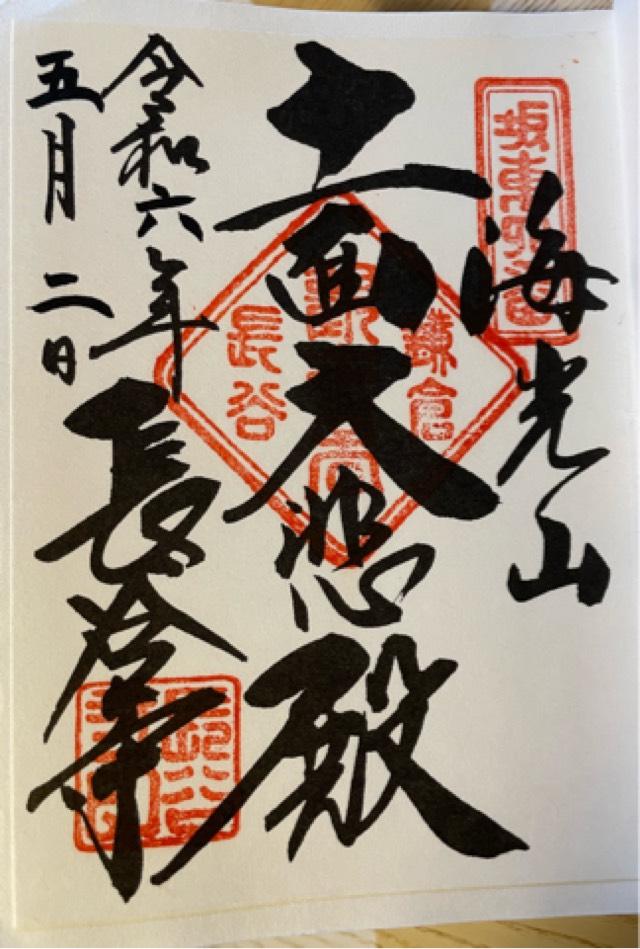 坂東四番
海光山
十一面大悲殿
鎌倉
観音
長谷
令和六年
五月二日
長谷寺